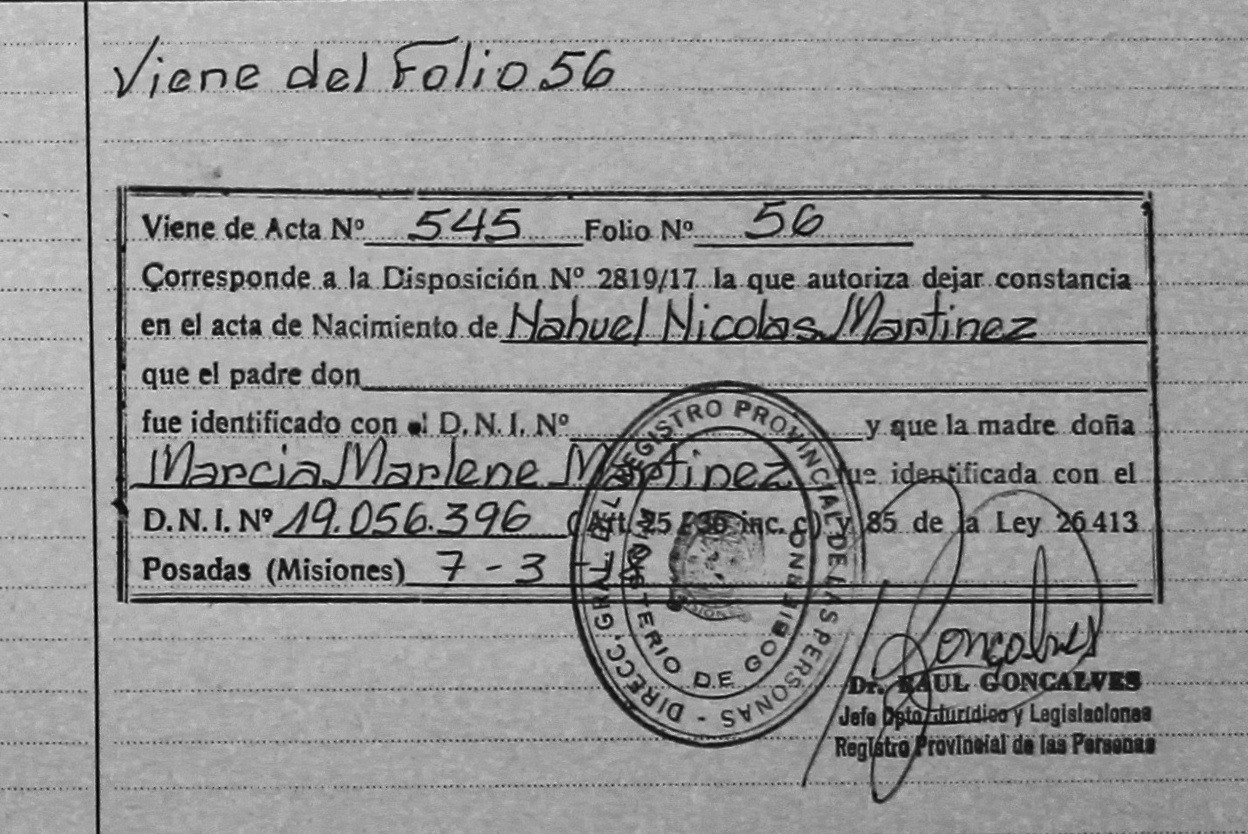 Viene del Folio 56
Viene de Acta Nº 545 Folio Nº 56
Corresponde a la Disposición Nº 2819/17 la que autoriza dejar constancia
en el acta de Nacimiento de Nahuel Nicolas Martinez
que el padre don
fue identificado con el D. N. I. Nº y que la madre doña
Marcia Marlene Martinez fue identificada con el
D. N. I. Nº 19.056.396 (Art. 25 36 inc. c) y 85 de la Ley 26 413
Posadas (Misiones) 7 - 3 -
DIRECC. GRAL. DEL REGISTRO PROVINCIAL DE LAS PERSONAS -
MINISTERIO DE GOBIERNO
MISIONES
Goncalves
Dr. RAUL GONCALVES
Jefe Dpto. Jurídico y Legislaciones
Registro Provincial de las Personas